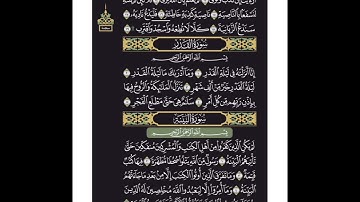 لَنَسْفَعًۢا بِٱلنَّاصِيَةِ ۝ نَاصِيَةٍ كَٰذِبَةٍ خَاطِئَةٍ ۝ فَلْيَدْعُ نَادِيَهُۥ ۝
سَنَدْعُ ٱلزَّبَانِيَةَ ۝ كَلَّا لَا تُطِعْهُ وَٱسْجُدْ وَٱقْتَرِب ۝
سُورَةُ القَدْرِ
بِسْمِ ٱللَّهِ ٱلرَّحْمَٰنِ ٱلرَّحِيمِ
إِنَّآ أَنزَلْنَٰهُ فِى لَيْلَةِ ٱلْقَدْرِ ۝ وَمَآ أَدْرَىٰكَ مَا لَيْلَةُ ٱلْقَدْرِ ۝
لَيْلَةُ ٱلْقَدْرِ خَيْرٌ مِّنْ أَلْفِ شَهْرٍ ۝ تَنَزَّلُ ٱلْمَلَٰٓئِكَةُ وَٱلرُّوحُ فِيهَا
بِإِذْنِ رَبِّهِم مِّن كُلِّ أَمْرٍ ۝ سَلَٰمٌ هِىَ حَتَّىٰ مَطْلَعِ ٱلْفَجْرِ ۝
سُورَةُ البَيِّنَةِ
بِسْمِ ٱللَّهِ ٱلرَّحْمَٰنِ ٱلرَّحِيمِ
لَمْ يَكُنِ ٱلَّذِينَ كَفَرُوا۟ مِنْ أَهْلِ ٱلْكِتَٰبِ وَٱلْمُشْرِكِينَ مُنفَكِّينَ حَتَّىٰ
تَأْتِيَهُمُ ٱلْبَيِّنَةُ ۝ رَسُولٌ مِّنَ ٱللَّهِ يَتْلُوا۟ صُحُفًا مُّطَهَّرَةً ۝ فِيهَا كُتُبٌ
قَيِّمَةٌ ۝ وَمَا تَفَرَّقَ ٱلَّذِينَ أُوتُوا۟ ٱلْكِتَٰبَ إِلَّا مِنۢ بَعْدِ مَا جَآءَتْهُمُ
ٱلْبَيِّنَةُ ۝ وَمَآ أُمِرُوٓا۟ إِلَّا لِيَعْبُدُوا۟ ٱللَّهَ مُخْلِصِينَ لَهُ ٱلدِّينَ